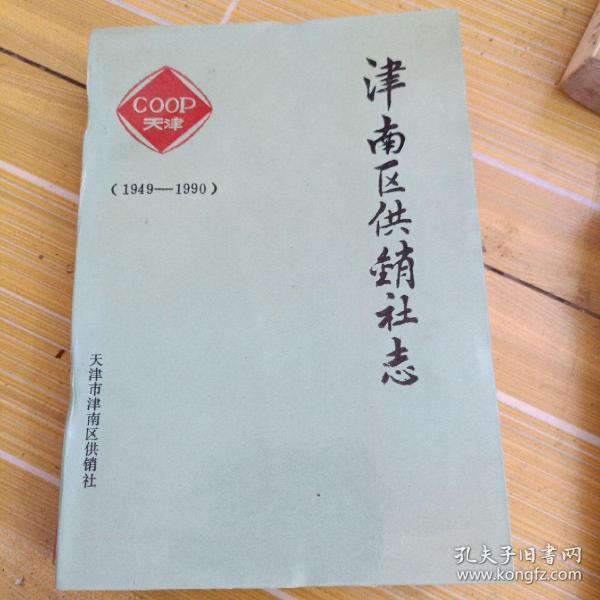 津南区供銷社志
COOP
天津
(1949—1990)
天津市津南区供销社
孔夫子旧书网
www.kongfz.com